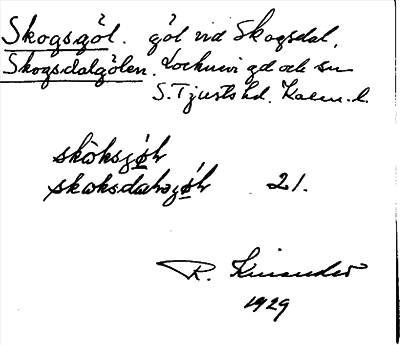 Skogsgöl. göl vid Skogsdal,
Skogsdalgölen. Locknevi gd och sn
S. Tjusts hd. Kalm. l.
skòksjø̀l
skoksdalsjø̀l 21.
R. Kinander
1929